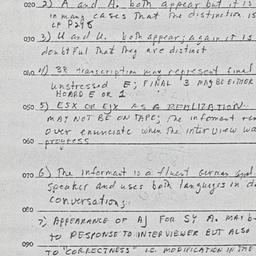 020 2) A and A. both appear but it is
in many cases that the distinction is
030 3) U and U. both appear; again it is
doubtful that they are distinct
040 4) 3R transcription may represent final
unstressed E; FINAL 3 MAY BE EITHER
HOARD E OR 1
050 5) ESX OR EJX AS A REALIZATION
MAY NOT BE ON TAPE; The informant
060 over enunciate when the interview wa
progress
070 6) The informant is a fluent German
speaker and uses both languages in d
conversations;
080
7) APPEARANCE OF AJ FOR SY A. MAY b
TO RESPONSE TO INTERVIEWER BUT ALSO
090
TO "CORRECTNESS" I.E. MODIFICATION IN THE